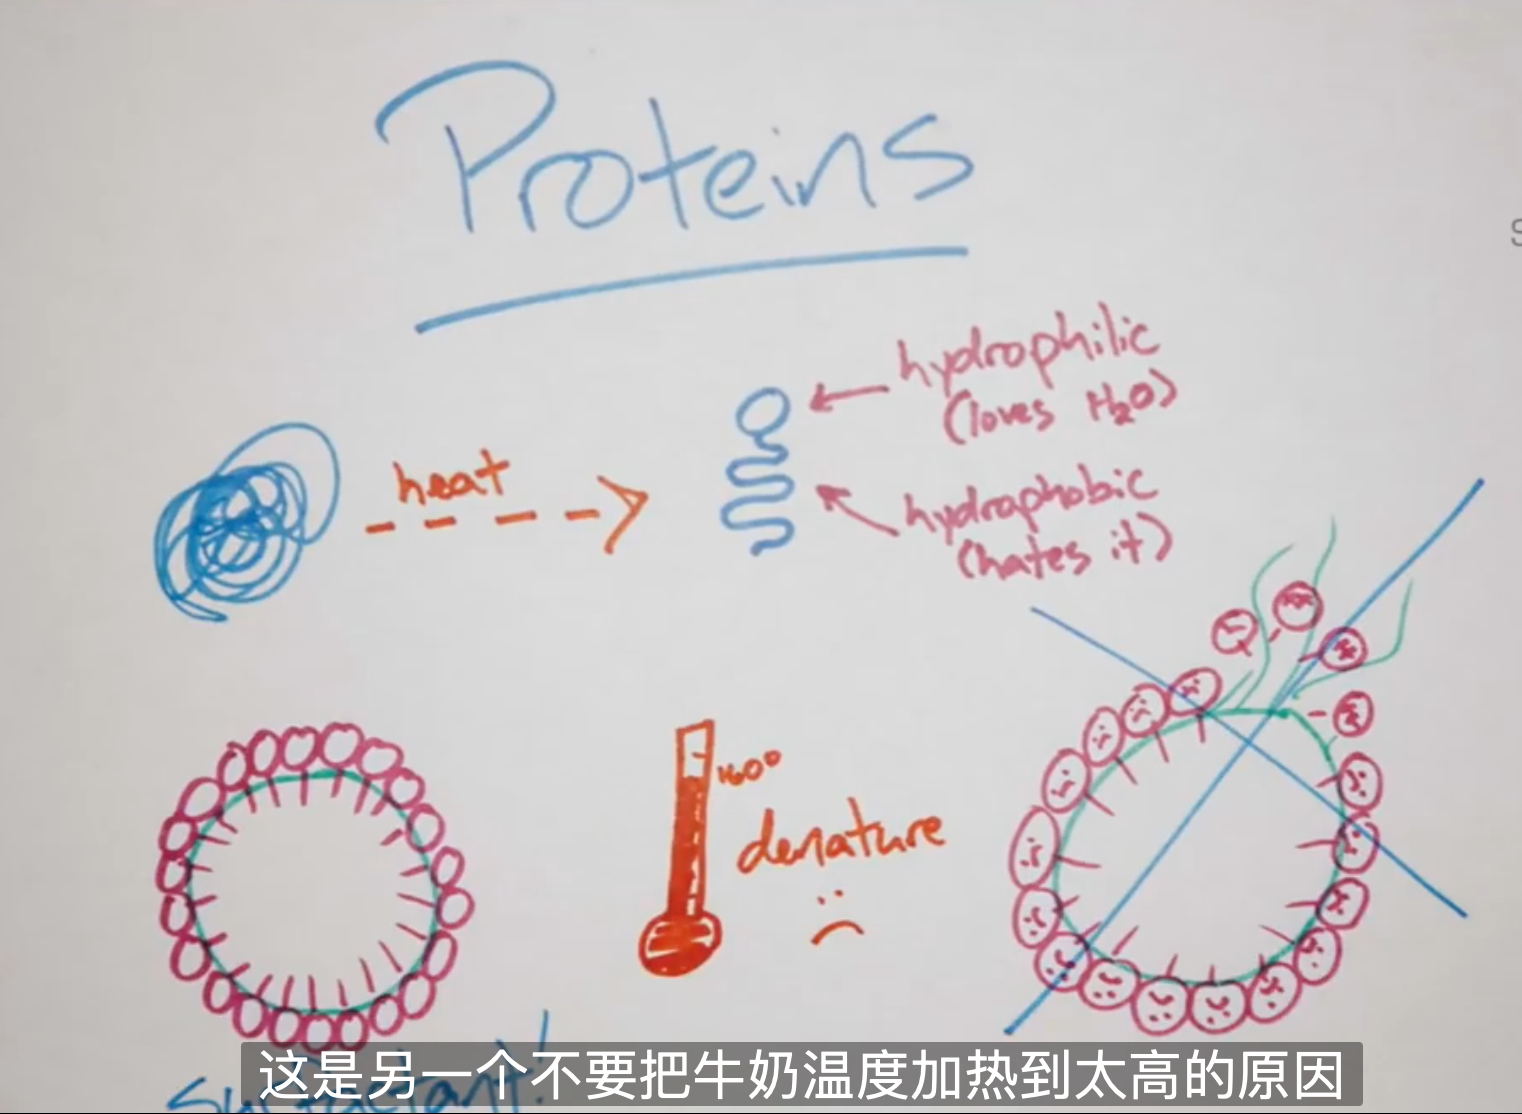 Proteins
hydrophilic
(loves H₂O)
heat
hydrophobic
(hates it)
160°
denature
surfactant!
这是另一个不要把牛奶温度加热到太高的原因